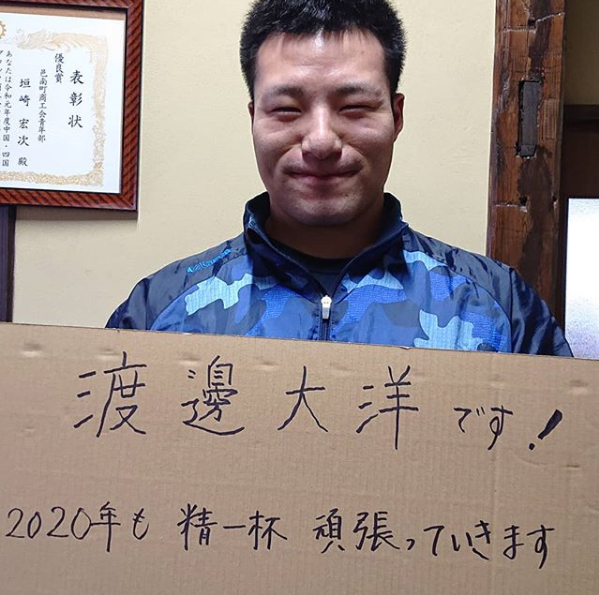 表彰状
優良賞
邑南町商工会青年部
垣崎 宏次 殿
あなたは令和元年度中国・四国
渡邊大洋です!
2020年も 精一杯 頑張っていきます